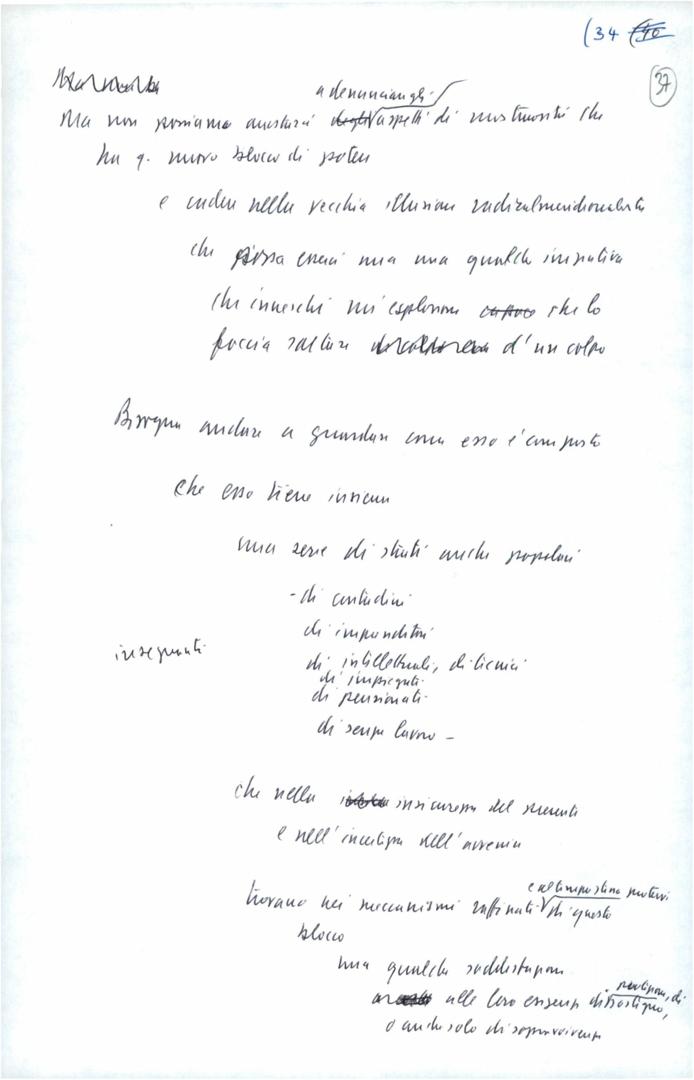 (34
37
a denunciare gli
Ma non possiamo arrestarci degli aspetti di mostruosità che
ha q. nuovo blocco di potere
e cadere nella vecchia illusione radicalmeridionalista
che possa esserci una qualche iniziativa
che inneschi un'esplosione che lo
faccia saltare d'un colpo
Bisogna andare a guardare come esso è composto
che esso tiene insieme
una serie di strati anche popolari
- di contadini
di imprenditori
insegnanti
di intellettuali, di tecnici
di impiegati
di pensionati
di senza lavoro -
che nella insicurezza del presente
e nell'incertezza dell'avvenire
e al tempo stesso
trovano nei meccanismi raffinati di questo
blocco
una qualche soddisfazione
alle loro esigenze di sostegno,
o anche solo di sopravvivenza